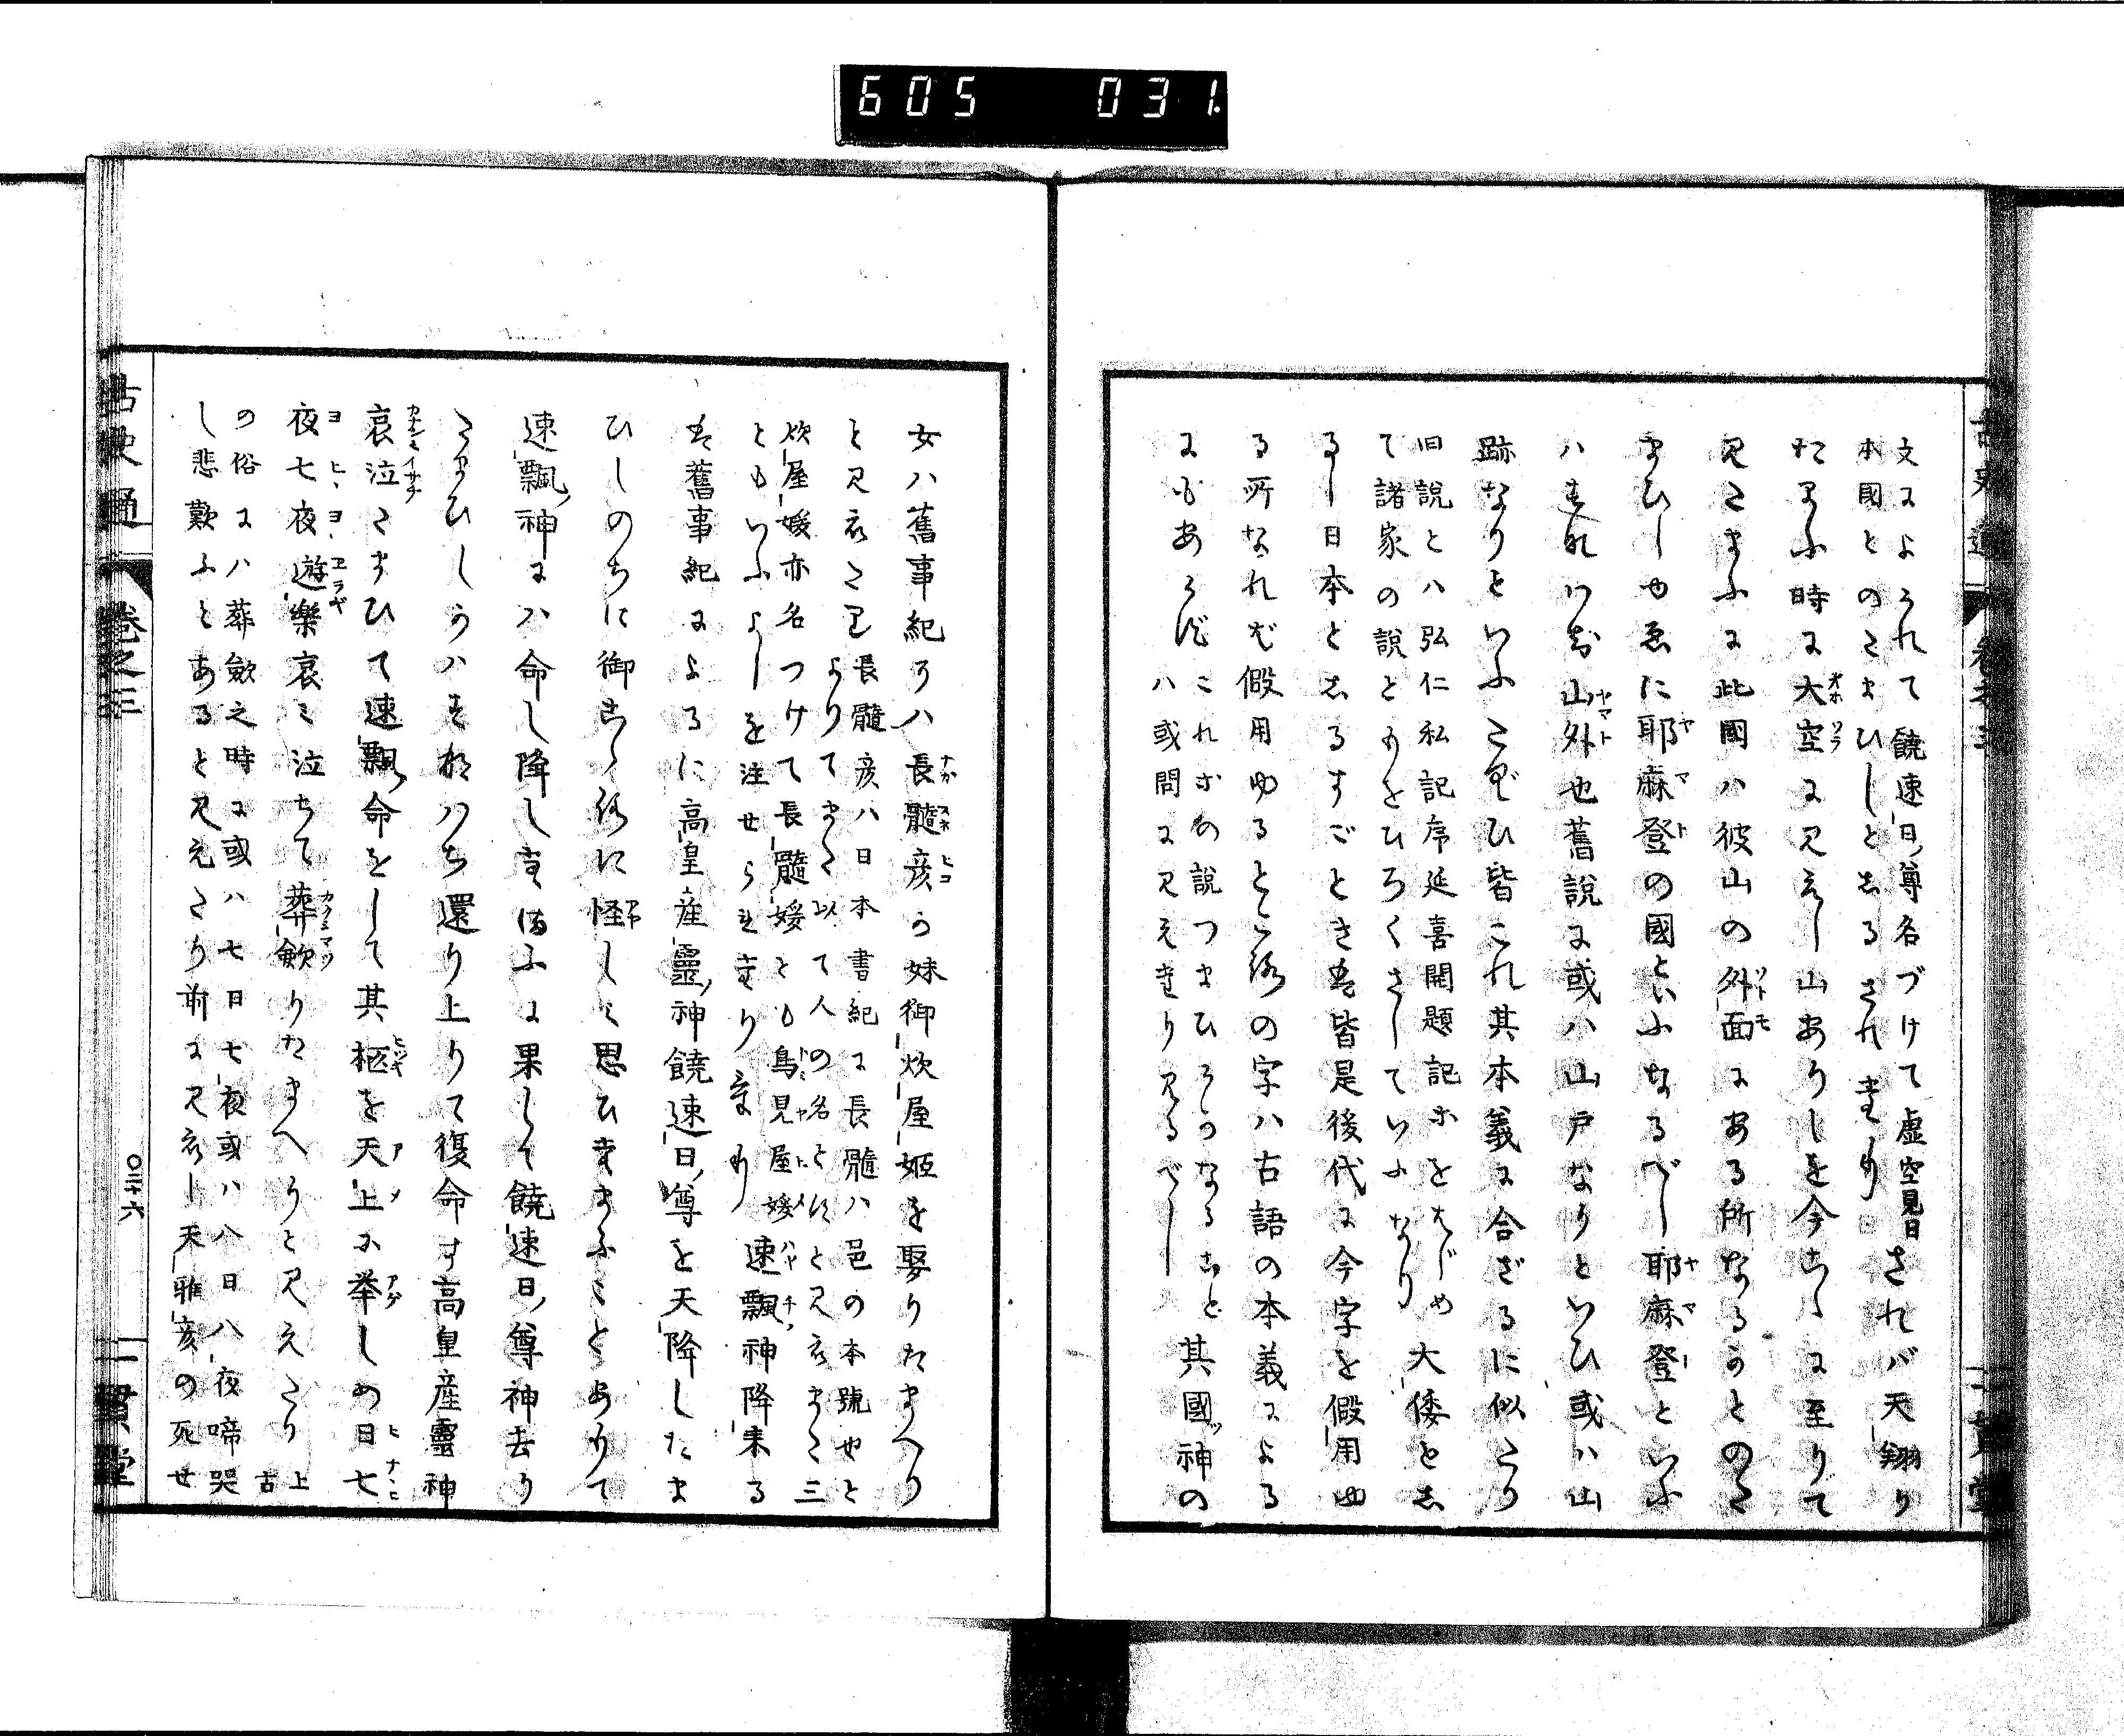 605 031
文によられて饒速日尊名づけて虚空見日
本國とのたまひしとしるされたり
されバ天翔り
たまふ時に大空に見えし山ありしを今こゝに至りて
見たまふに此國ハ彼山の外面にある所なるかとのた
まひしゆゑに耶麻登の國といふなるべし耶麻登といふ
ハすなハち山外也舊説に或ハ山戸なりといひ或ハ山
跡なりといふたぐひ皆これ其本義に合ざるに似たり
旧説とハ弘仁私記序延喜開題記ホをはじめ
て諸家の説とものをひろくさしていふなり
大倭をし
るし日本としるすごとき是皆是後代に今字を假用ゆ
る所なれバ假用ゆるところの字ハ古語の本義による
にもあらずこれホの説つまひらかなること
ハ或問に見えたり見るべし
其國神の
女ハ舊事紀にハ長髓彦か妹御炊屋姫を娶りたまへり
と見えたり長髓彦ハ日本書紀に長髓ハ邑の本號也と
よりてまた以て人の名とすと見えまた三
炊屋媛亦名つけて長髓媛とも鳥見屋媛
ともいふよしを注せられたり
速飄神降来る
是舊事紀によるに高皇産靈神饒速日尊を天降したま
ひしのちに御こゝろに怪しミ思ひたまふことありて
速飄神にハ命し降したまふに果して饒速日尊神去り
たまひしかハすなハち還り上りて復命す高皇産靈神
哀泣たまひて速飄命をして其柩を天上に举しめ日七
夜七夜遊樂哀ミ泣ちて葬歛りたまへりと見えたり
上古
の俗にハ葬歛之時に或ハ七日七夜或ハ八日八夜啼哭
し悲歎ふとあると見えたり前に見えし天雅彦の死せ
古史通 卷之三 〇三十六 一貫堂